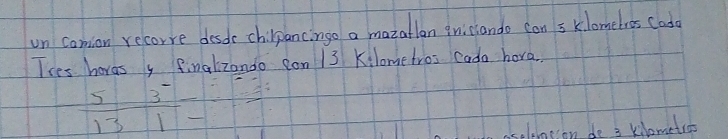 un camion recorre desde chilpancingo a mazatlan iniciando con 5 Klometros Cada
Tres horas y finalizando con 13 Kilometros Cada hora.
5 3 =
13 1 -
de 3 Kilometros